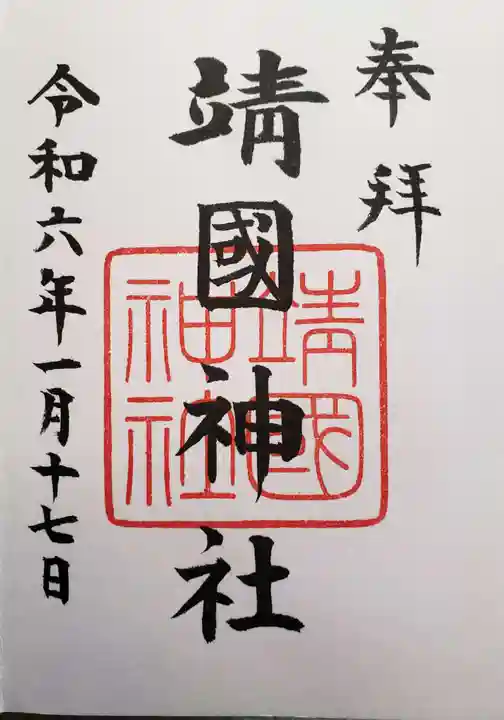 奉拝
靖國神社
靖國
神社
令和六年一月十七日